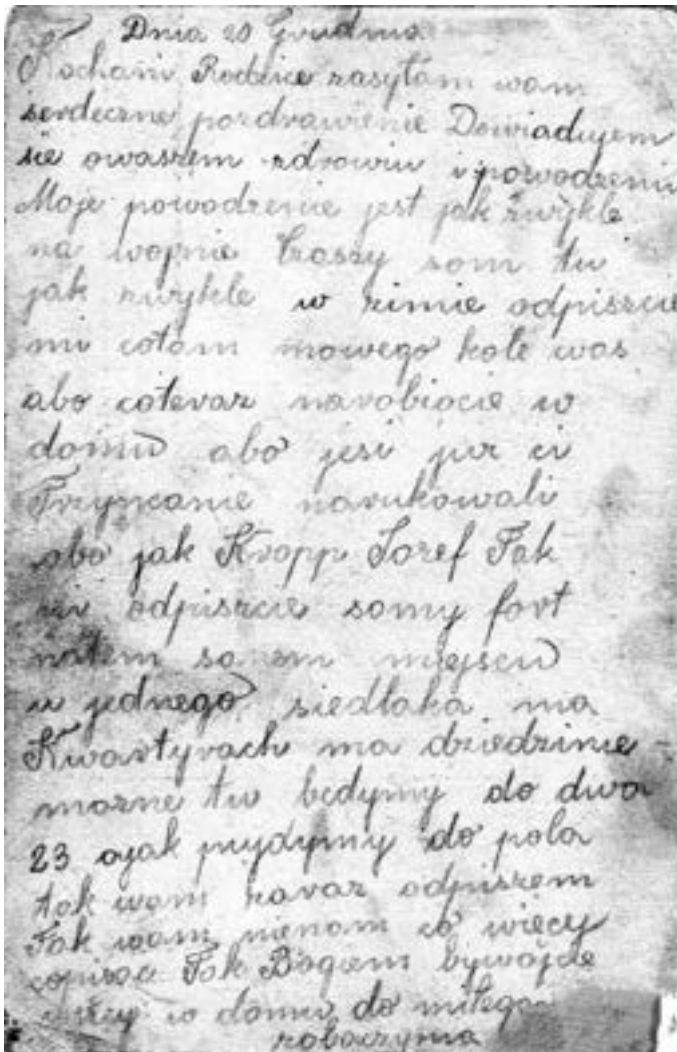 Dnia 20 Grudnia
Kochani Rodzice zasyłam wam
serdeczne pozdrawienie Dowiadujem
sie owaszem zdrowiu i powodzeniu
Moje powodzenie jest jak zwykle
na wojnie czasy som tu
jak zwykle w zimie odpiszcie
mi cotam nowego kole was
abo coteraz narobiocie w
domu abo jesi juz ci
Trzyncanie narukowali
abo jak Kropp Jozef Tak
mi odpiszcie somy fort
natem samem miejscu
u jednego siedłaka
Kwartyrach na dziedzinie
mozne tu bedymy do dwa
23 ajak pujdymy do pola
tak wam zaraz odpiszem
Tak wam nienom co wiecy
copisac Tak Bogiem bywojcie
w domu do miłego
zobaczynia